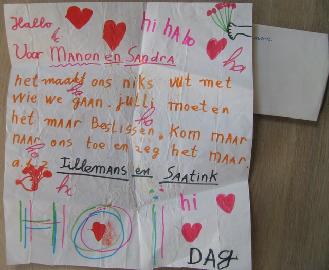 Hallo
hi hallo
Voor MANON en SANDRA
ha
het maakt ons niks uit met
wie we gaan. julli moeten
het maar Beslissen. Kom maar
naar ons toe en zeg het maar
Tillemans en SAATink
hi
HOI
DAg